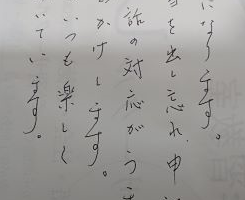 になります。
を出し忘れ、申
話の対応がう
かけします。
いつも楽しく
いています。